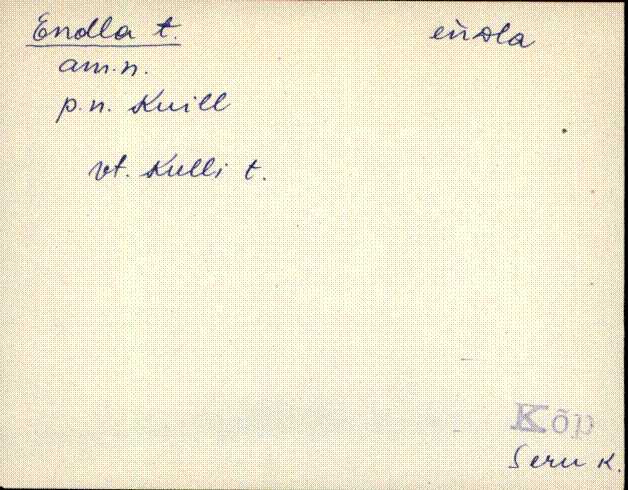 Endla t. eǹdla
am.n.
p.n. Kuill
vt. Kulli t.
Kõp
Seru K.